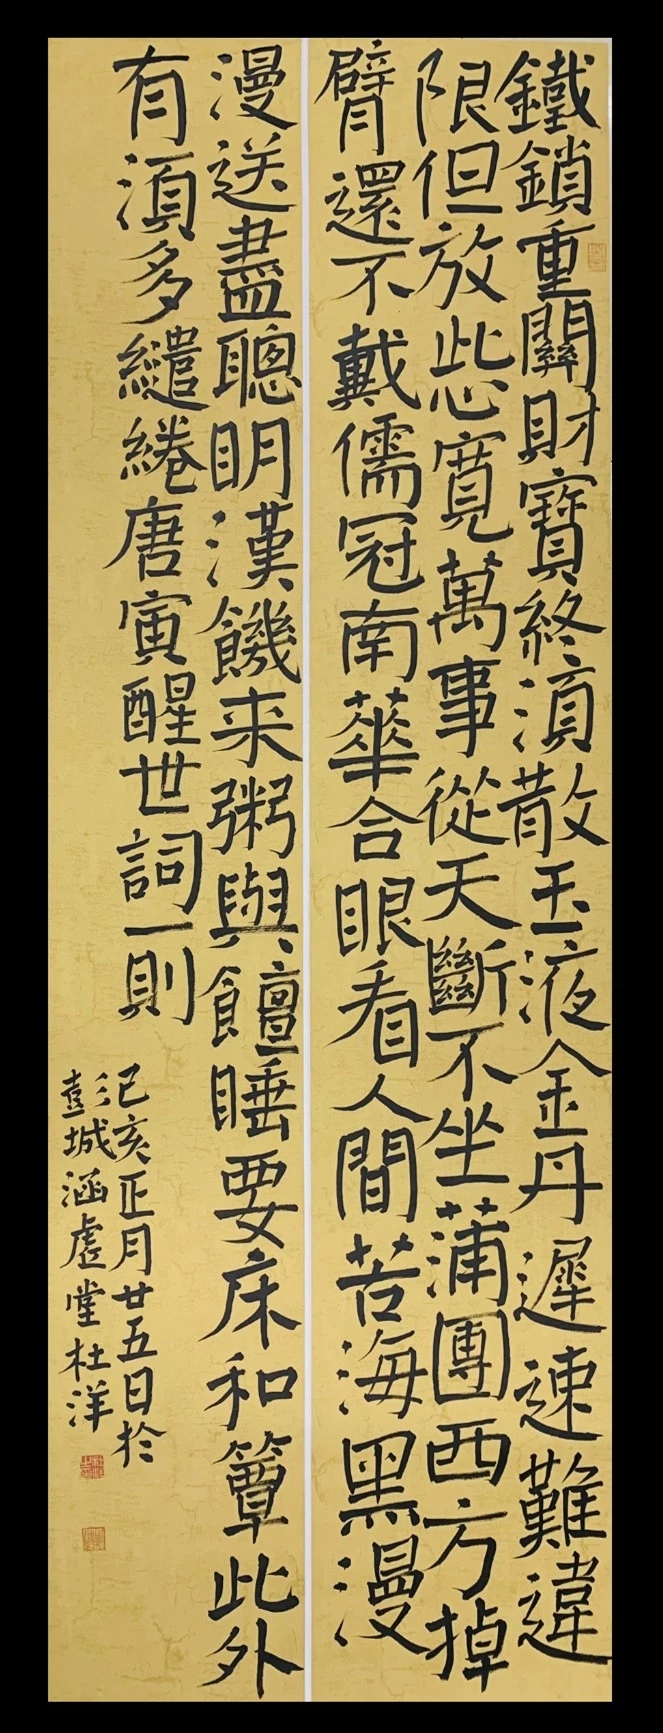 鐵鎖重關財寶終須散玉液金丹遲速難違
限但放此心寬萬事從天斷不坐蒲團西方掉
臂還不戴儒冠南華合眼看人間苦海黑漫
漫送盡聰明漢饑来粥與饘睡要床和簟此外
有須多繾綣唐寅醒世詞一則
己亥正月廿五日於
彭城涵虛堂杜洋